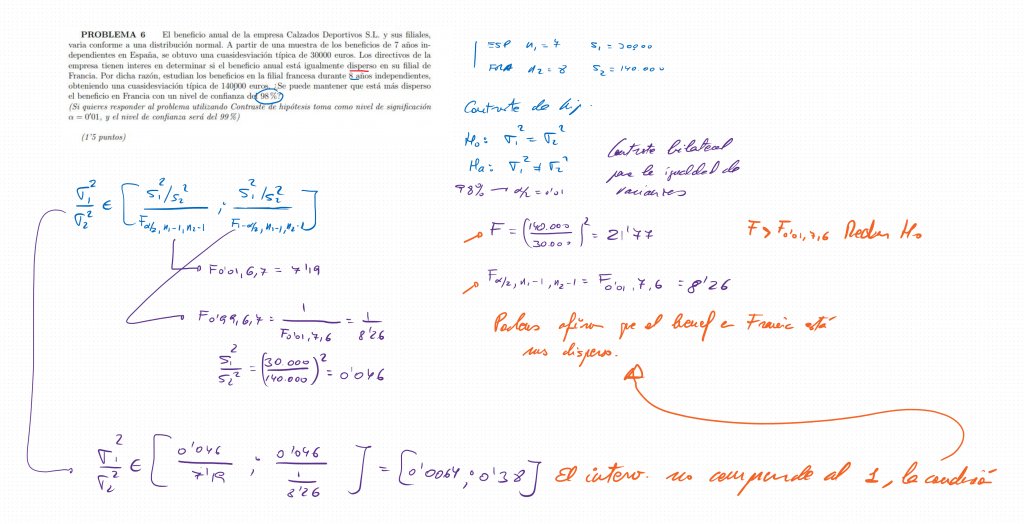 PROBLEMA 6 El beneficio anual de la empresa Calzados Deportivos S.L. y sus filiales,
varía conforme a una distribución normal. A partir de una muestra de los beneficios de 7 años in-
dependientes en España, se obtuvo una cuasidesviación típica de 30000 euros. Los directivos de la
empresa tienen interes en determinar si el beneficio anual está igualmente disperso en su filial de
Francia. Por dicha razón, estudian los beneficios en la filial francesa durante 8 años independientes,
obteniendo una cuasidesviación típica de 140000 euros. ¿Se puede mantener que está más disperso
el beneficio en Francia con un nivel de confianza del 98%?
(Si quieres responder al problema utilizando Contraste de hipótesis toma como nivel de significación
α = 0'01, y el nivel de confianza será del 99%)
(1'5 puntos)
ESP n₁ = 7 S₁ = 30000
FRA n₂ = 8 S₂ = 140.000
Contraste de hip.
H₀: σ₁² = σ₂²
Ha: σ₁² ≠ σ₂²
Contraste bilateral
para la igualdad de
varianzas
98% → α/2 = 0'01
F = (140.000/30.000)² = 21'77
F > F₀'₀₁,₇,₆ Rechazo H₀
F α/2, n₁-1, n₂-1 = F₀'₀₁,₇,₆ = 8'26
Podemos afirmar que el benef en Francia está
más disperso.
σ₁²/σ₂² ∈ [ (S₁²/S₂²)/(F α/2, n₁-1, n₂-1) ; (S₁²/S₂²)/(F 1-α/2, n₁-1, n₂-1) ]
F₀'₀₁,₆,₇ = 7'19
F₀'₉₉,₆,₇ = 1/F₀'₀₁,₇,₆ = 1/8'26
S₁²/S₂² = (30.000/140.000)² = 0'046
σ₁²/σ₂² ∈ [ 0'046/7'19 ; 0'046/(1/8'26) ] = [0'0064 ; 0'38] El interv. no comprende al 1, la condición